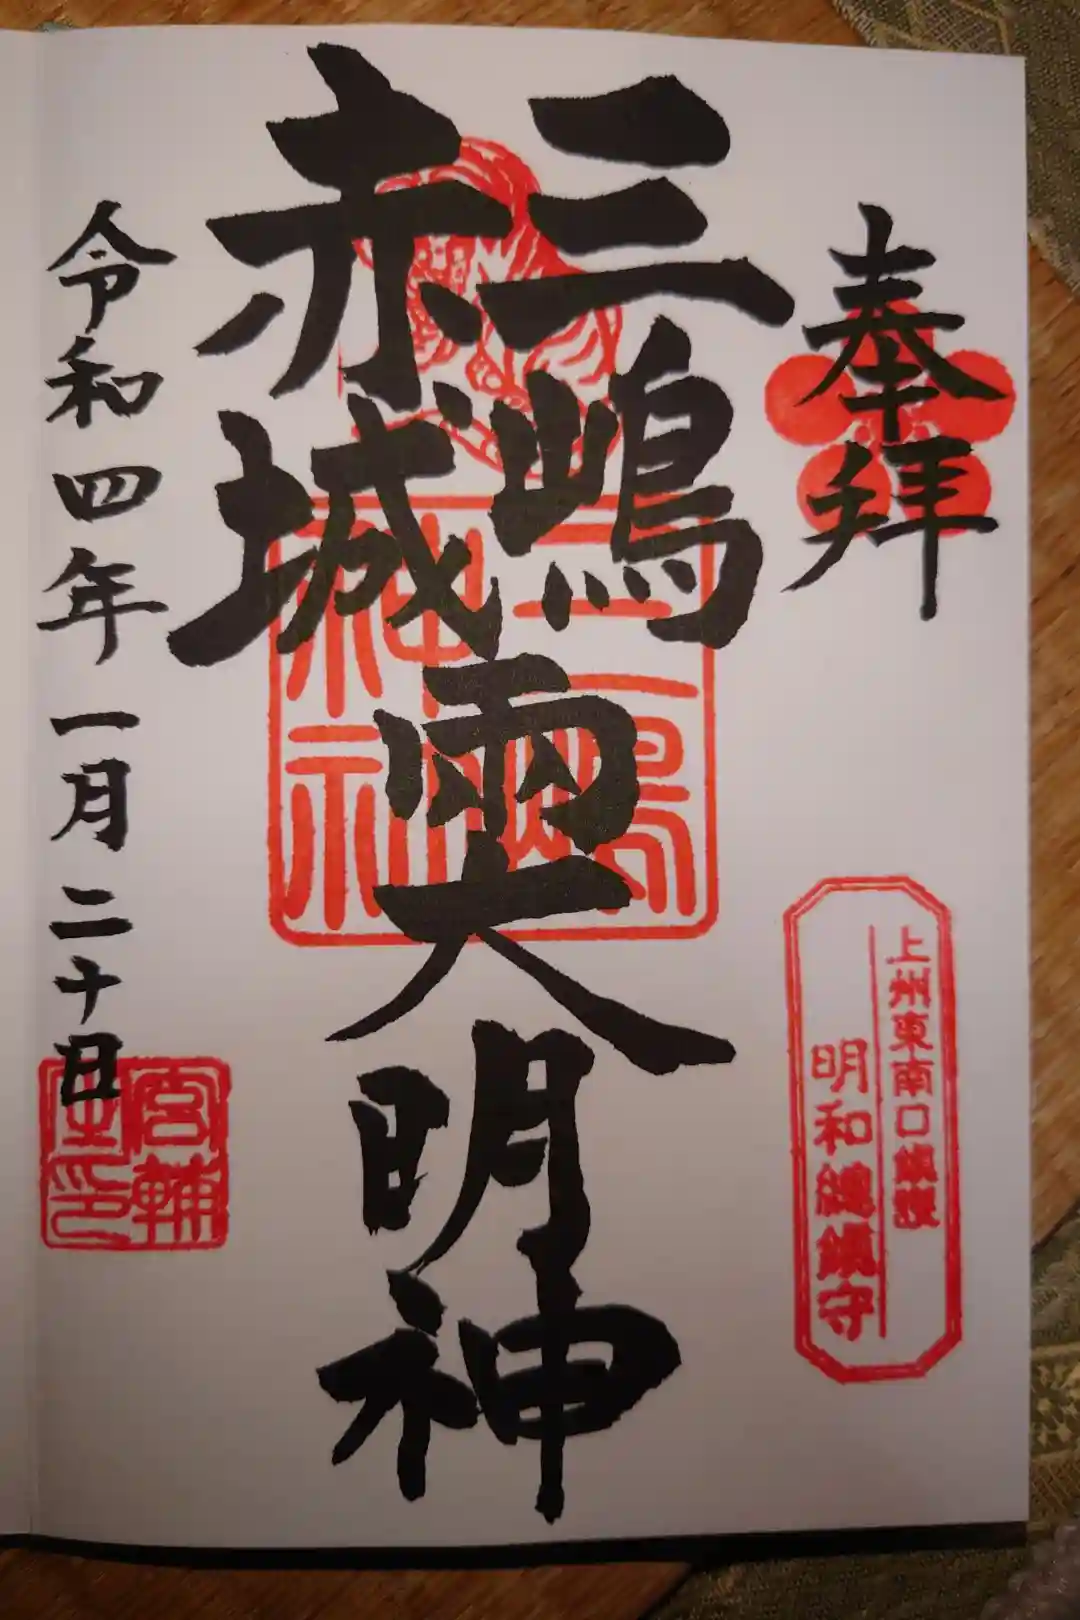 奉拝
上州東南口鎮護
明和総鎮守
三嶋
赤城
両大明神
三嶋
神社
令和四年一月二十日
宮輔
之印